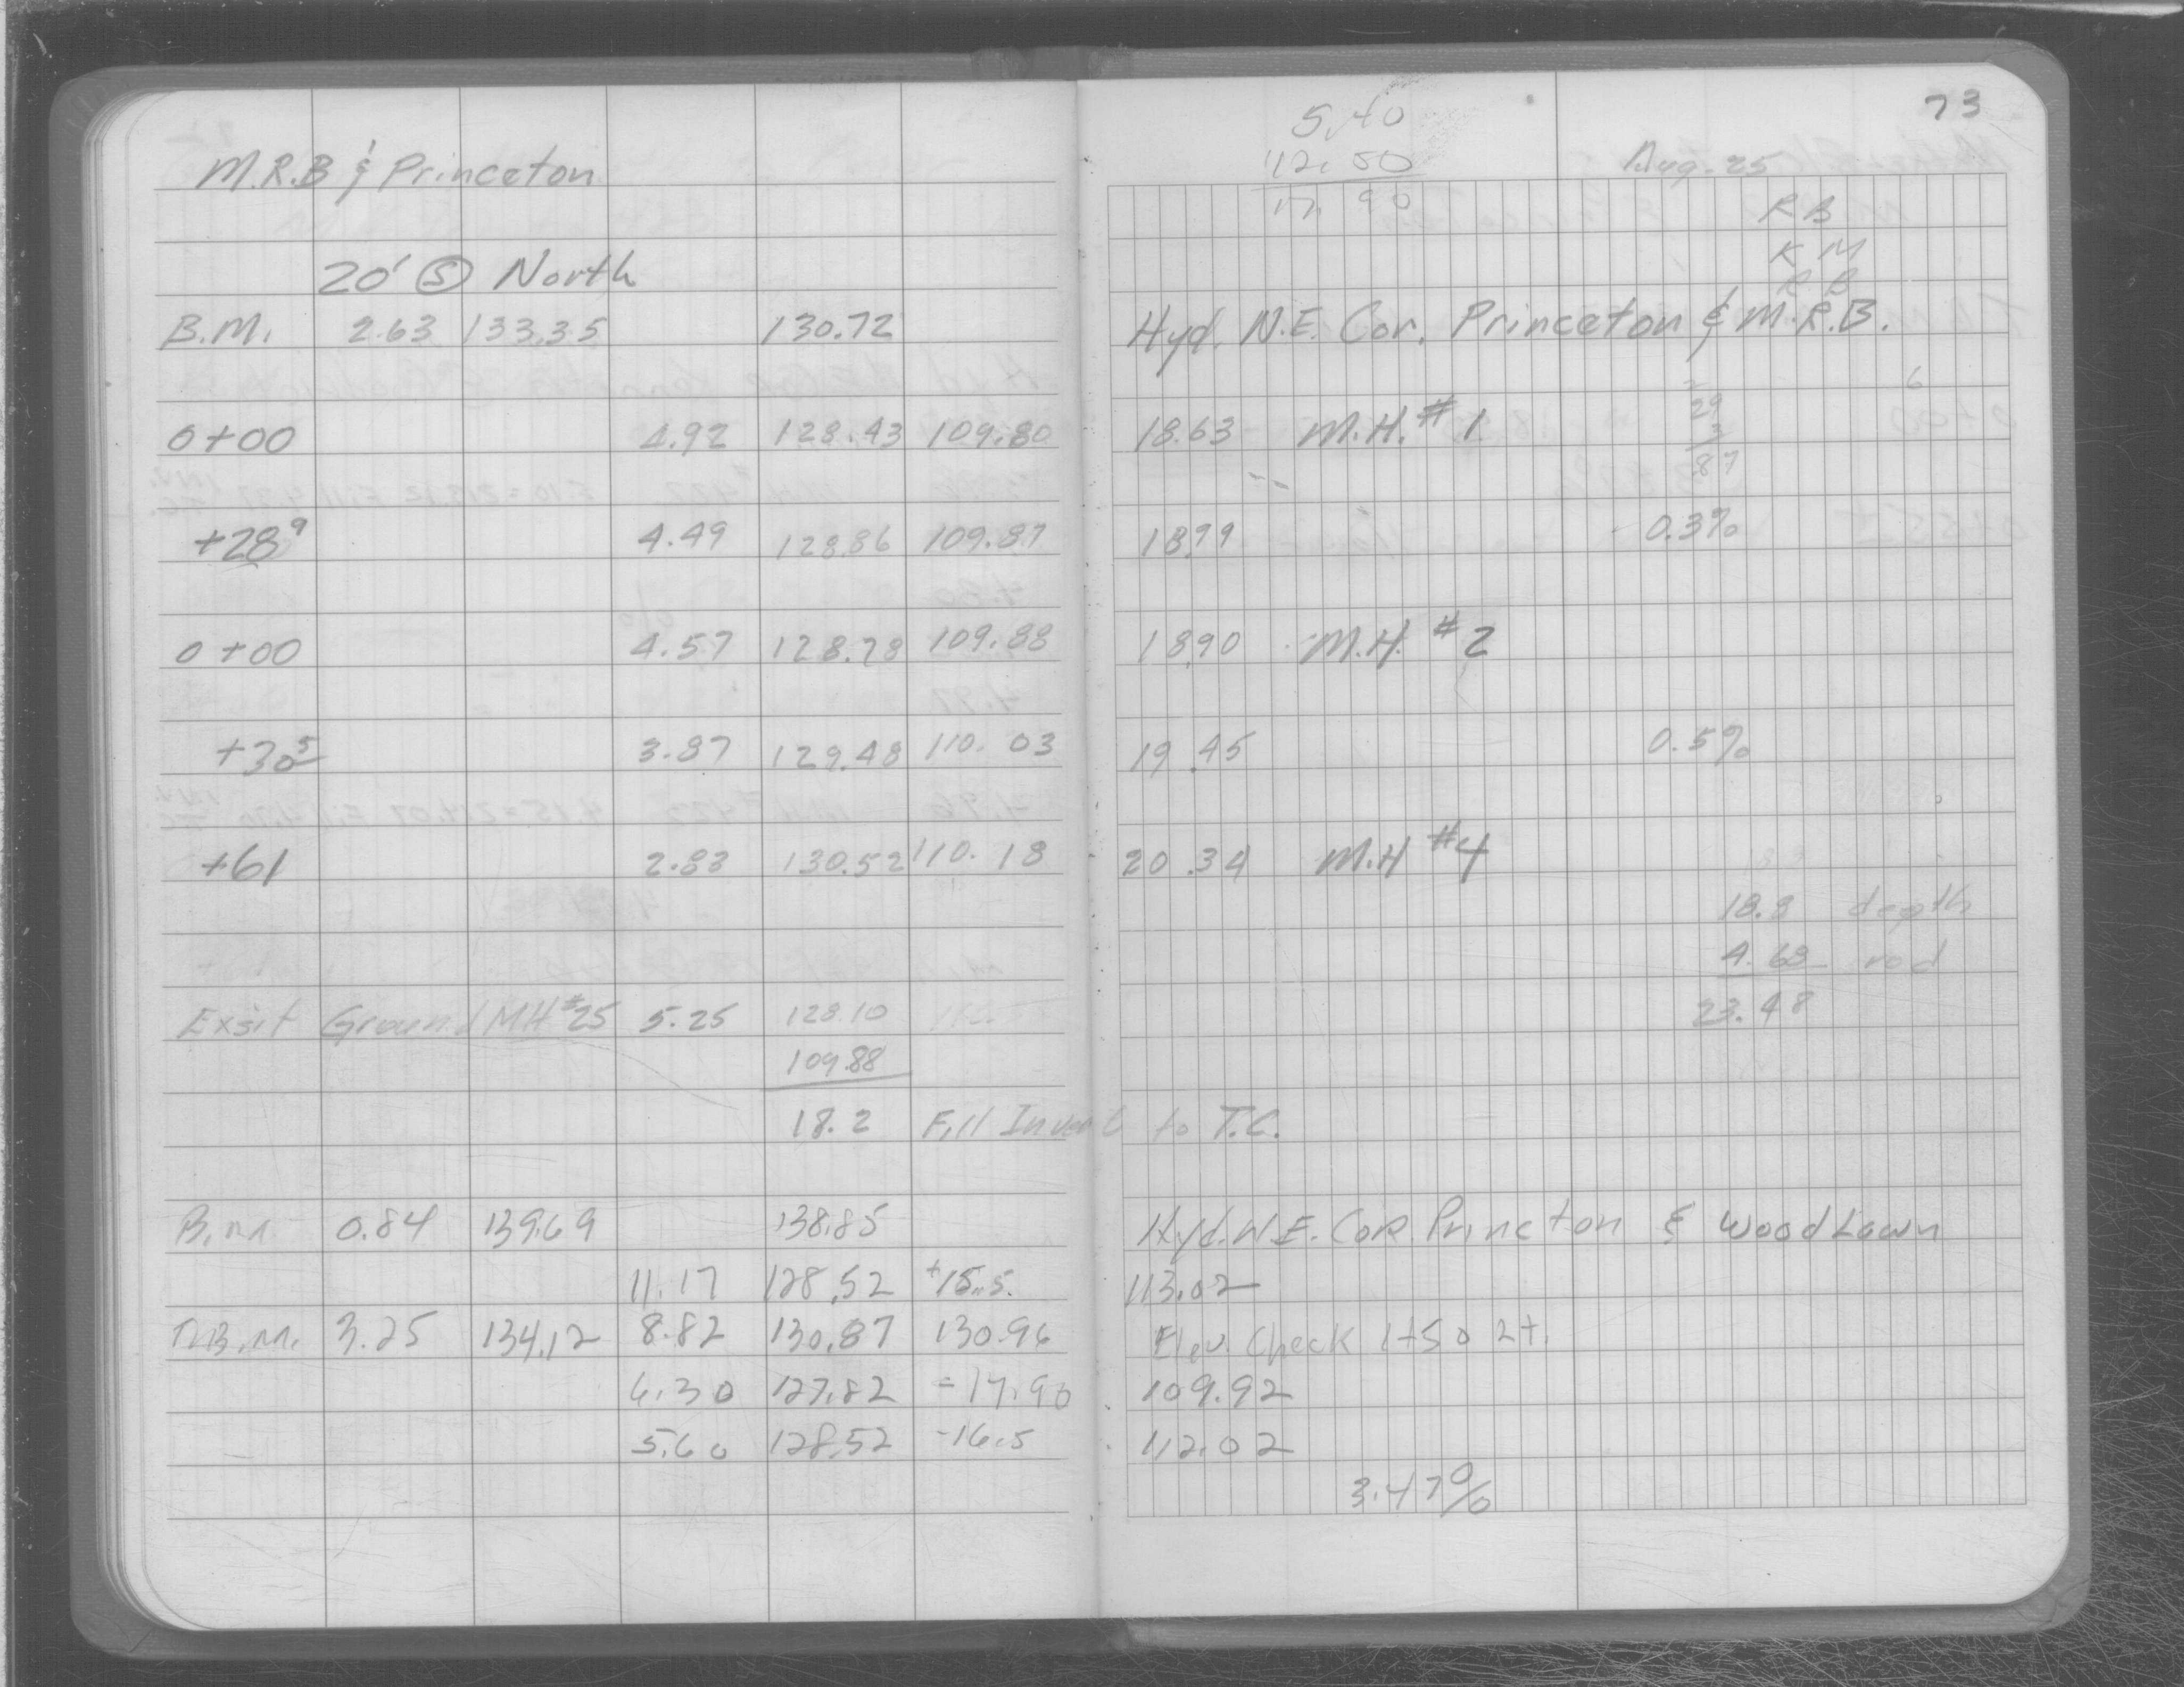 73
5.40
12.50
17.90
Aug. 25
M.R.B & Princeton
RB
KM
RB
20' (S) North
B.M. 2.63 133.35 130.72 Hyd. N.E. Cor. Princeton & M.R.B.
6
29
3
87
0+00 4.92 128.43 109.80 18.63 M.H. #1
+28⁹ 4.49 128.86 109.87 18.99 0.3%
0+00 4.57 128.78 109.88 18.90 M.H. #2
+30⁵ 3.87 129.48 110.03 19.45 0.5%
+61 2.83 130.52 110.18 20.34 M.H #4
18.8 depth
4.68 rod
23.48
Exsit Ground MH #25 5.25 128.10
109.88
18.2 Fill Invert to T.C.
B.M. 0.84 139.69 138.85 Hyd. N.E. Cor. Princton & WoodLawn
11.17 128.52 +15.5 113.02
T.B.M. 3.25 134.12 8.82 130.87 130.96 Elev. Check 1+50 Lt.
6.30 127.82 -17.90 109.92
5.60 128.52 -16.5 112.02
3.47%